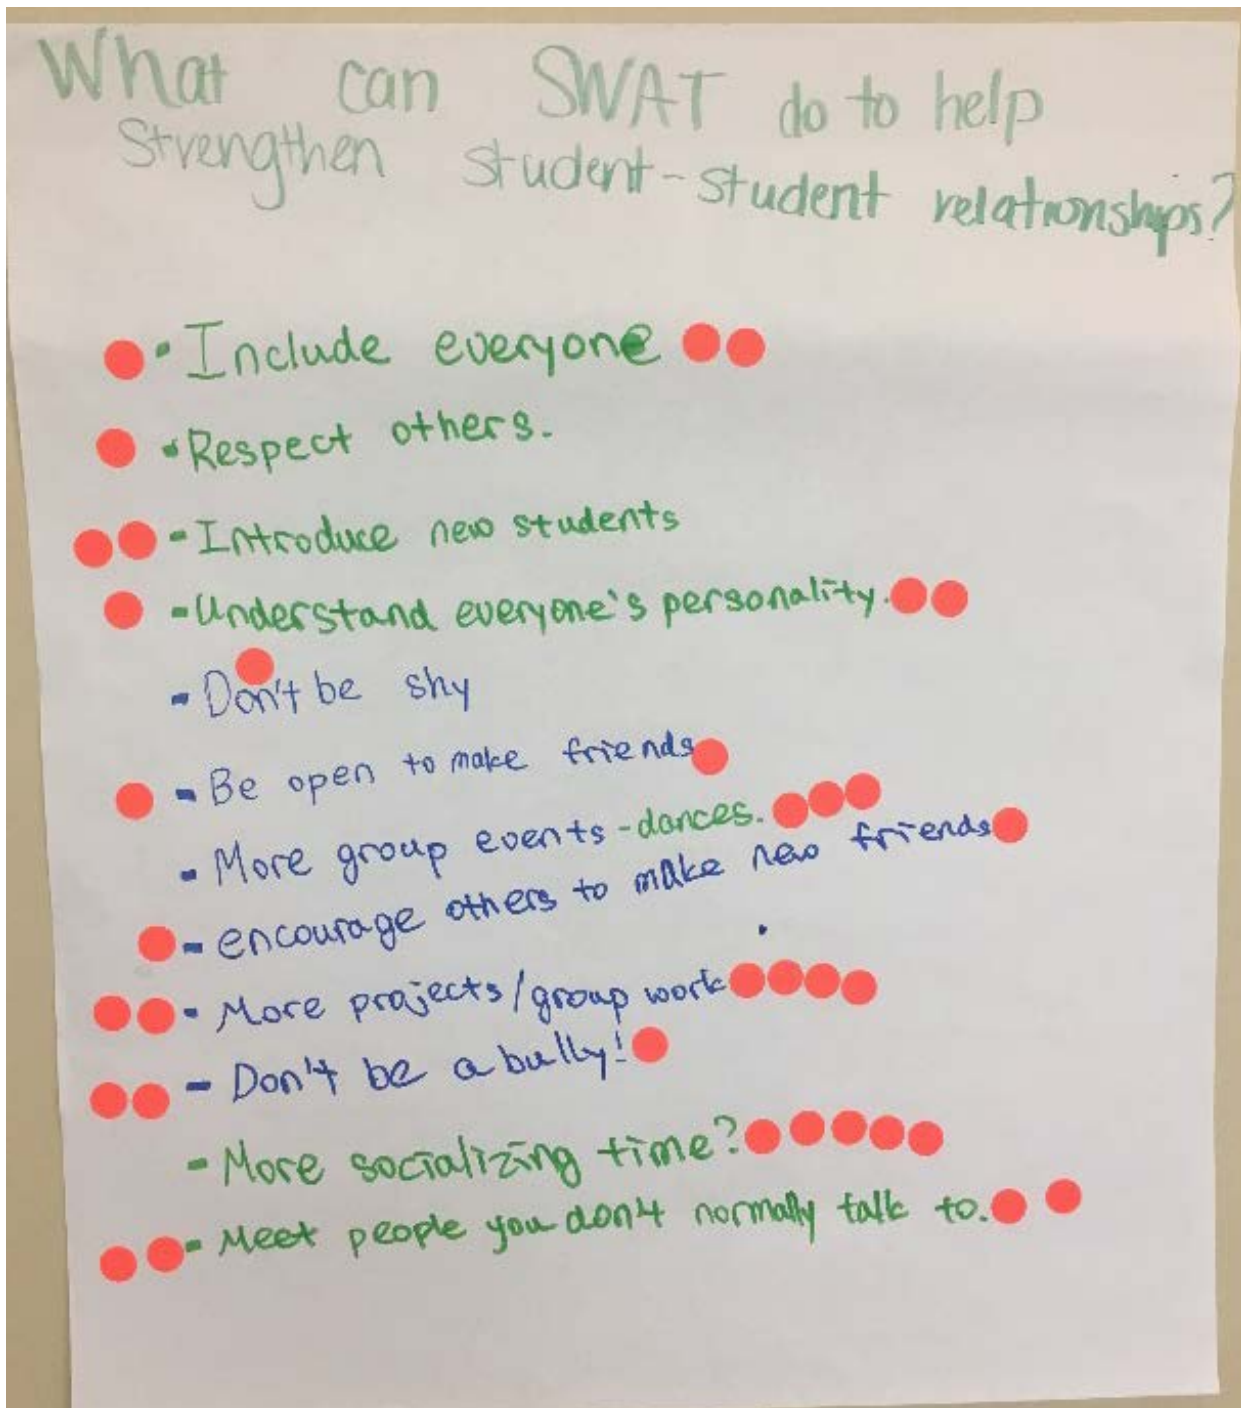 What can SWAT do to help
Strengthen student-student relationships?
• Include everyone
• Respect others.
- Introduce new students
- Understand everyone's personality.
- Don't be shy
- Be open to make friends
- More group events - dances.
- encourage others to make new friends
- More projects/group work
- Don't be a bully!
- More socializing time?
- Meet people you don't normally talk to.